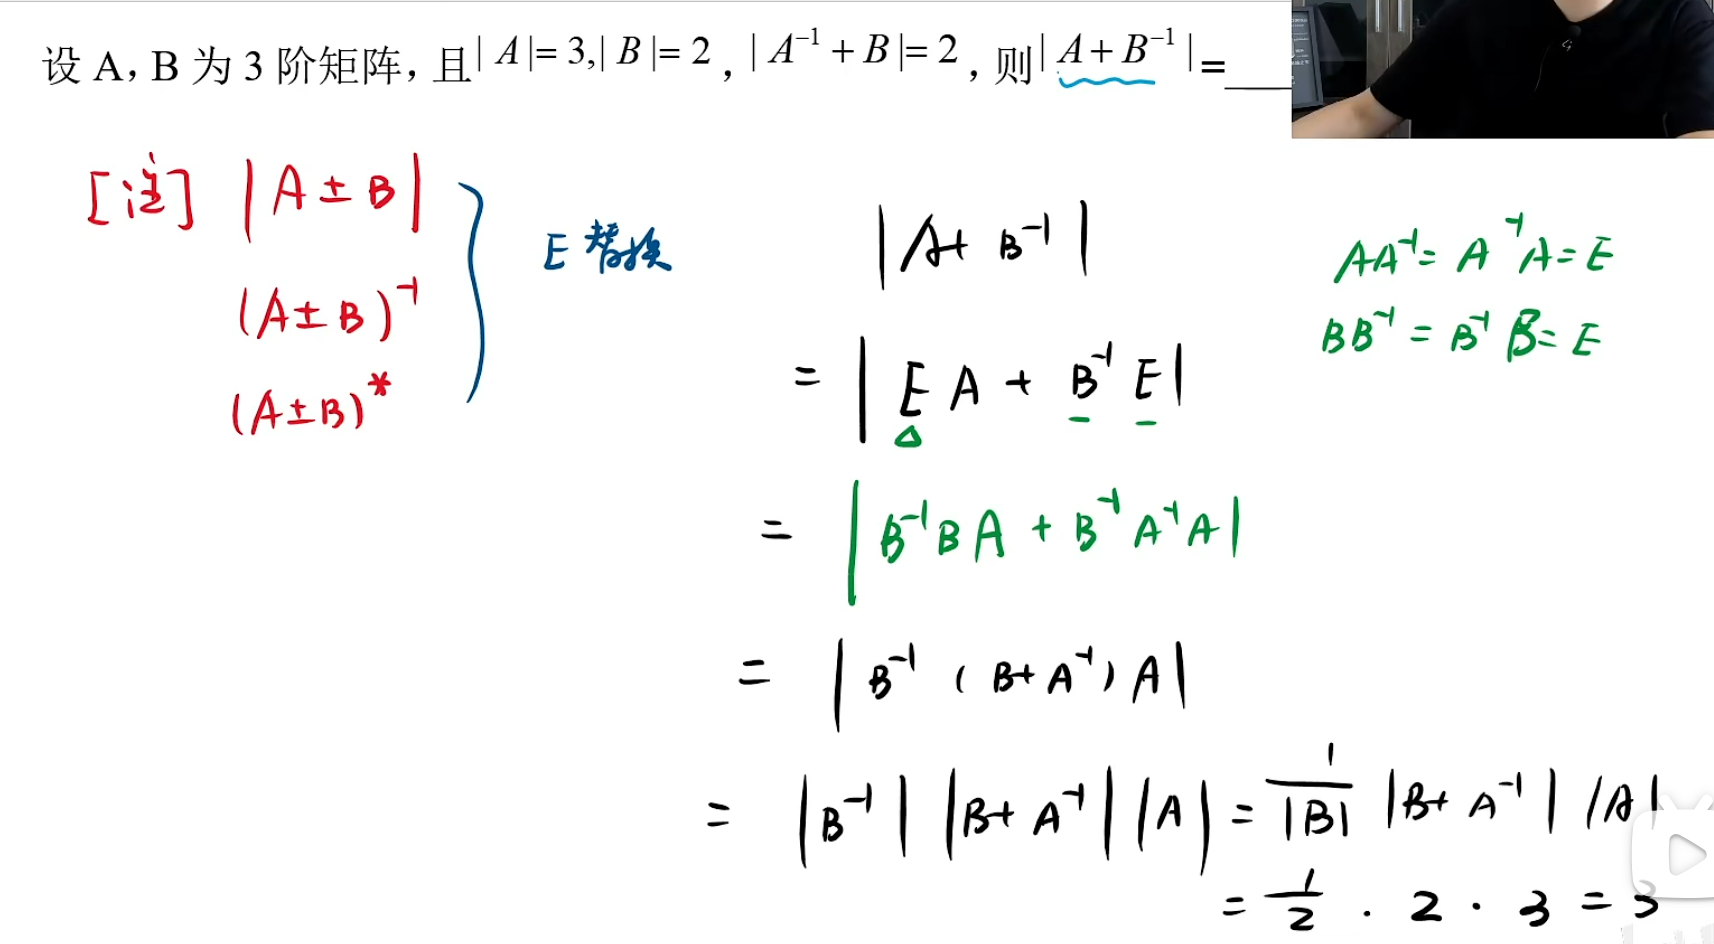 设 A, B 为 3 阶矩阵, 且 | A |= 3,| B |= 2 , | A⁻¹ + B |= 2 , 则 | A + B⁻¹ | = ____
[注] | A ± B |
(A ± B)⁻¹
(A ± B)*
E 替换
| A + B⁻¹ |
= | E A + B⁻¹ E |
= | B⁻¹ B A + B⁻¹ A⁻¹ A |
= | B⁻¹ ( B + A⁻¹ ) A |
= | B⁻¹ | | B + A⁻¹ | | A | = 1/|B| | B + A⁻¹ | | A |
= 1/2 · 2 · 3 = 3
AA⁻¹ = A⁻¹A = E
BB⁻¹ = B⁻¹B = E